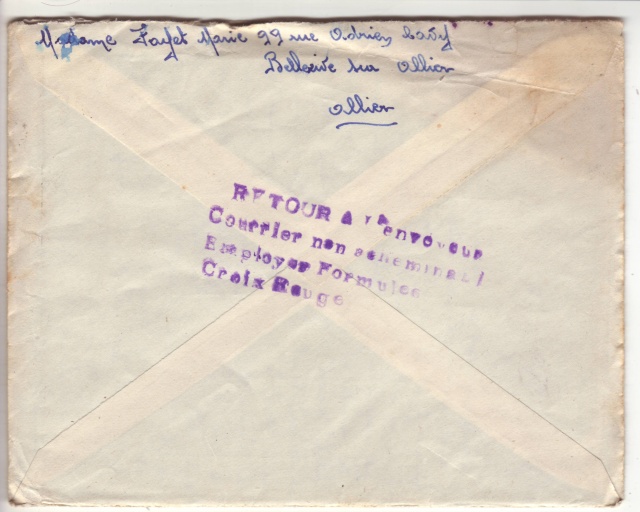 Madame Fayet Marie 99 rue Adrien Cavy
Bellerive sur Allier
Allier
RETOUR A L'envoyeur
Courrier non acheminable
Employer Formules
Croix Rouge